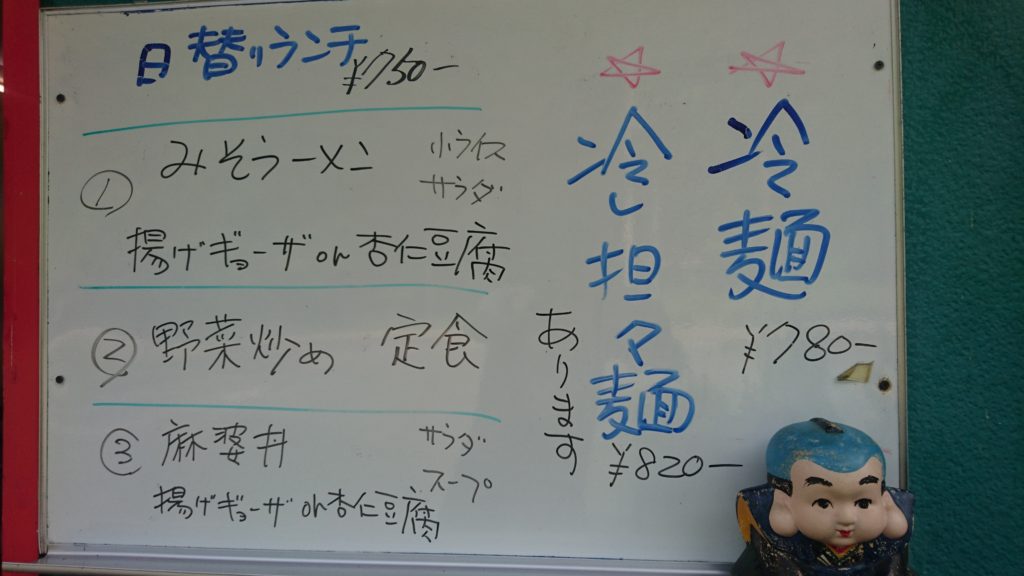 日替りランチ
¥750-
① みそラーメン 小ライス
サラダ
揚げギョーザ or 杏仁豆腐
② 野菜炒め 定食
③ 麻婆丼 サラダ
スープ
揚げギョーザ or 杏仁豆腐
☆冷麺
¥780-
☆冷し担々麺
¥820-
あります